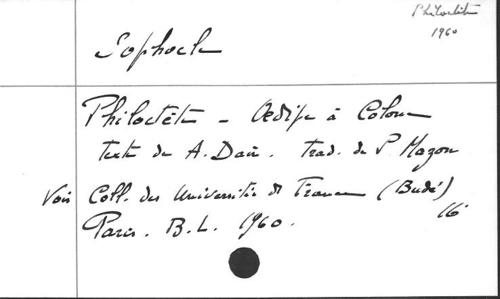 Philoctète
1960
Sophocle
Philoctète - Œdipe à Colone
texte de A. Dain. trad. de P Mazon
Voir Coll. des Universités de France (Budé)
16
Paris. B.L. 1960.